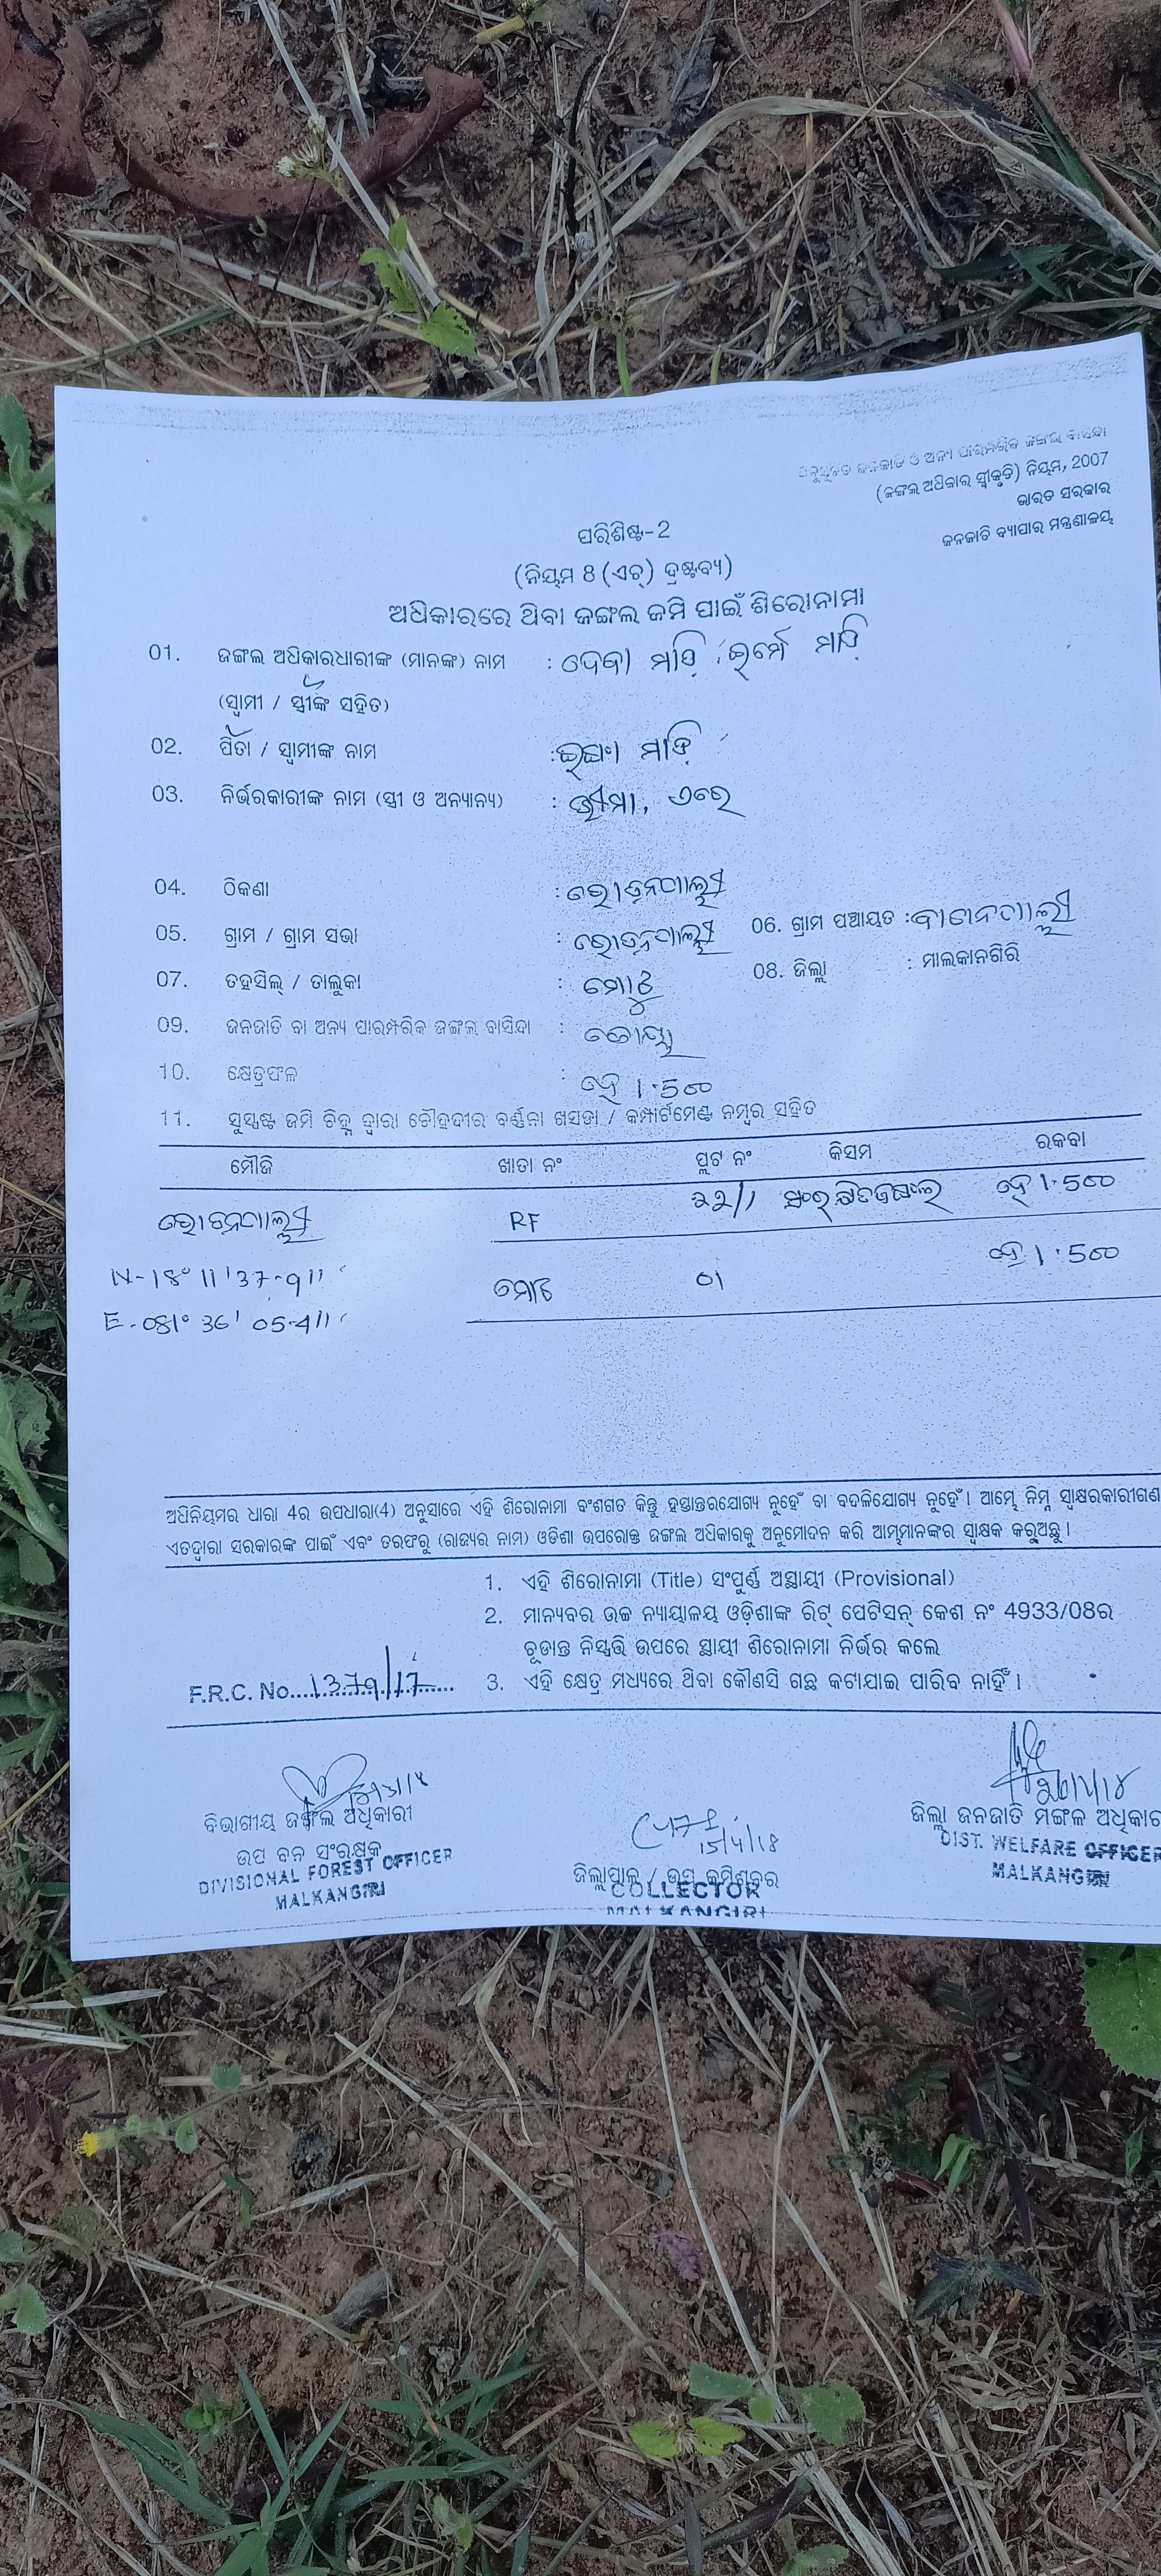 ଅନୁସୂଚିତ ଜନଜାତି ଓ ଅନ୍ୟ ପାରମ୍ପରିକ ଜଙ୍ଗଲ ବାସିନ୍ଦା
(ଜଙ୍ଗଲ ଅଧିକାର ସ୍ୱୀକୃତି) ନିୟମ, 2007
ଭାରତ ସରକାର
ଜନଜାତି ବ୍ୟାପାର ମନ୍ତ୍ରଣାଳୟ
ପରିଶିଷ୍ଟ-2
(ନିୟମ 8 (ଏଚ୍) ଦ୍ରଷ୍ଟବ୍ୟ)
ଅଧିକାରରେ ଥିବା ଜଙ୍ଗଲ ଜମି ପାଇଁ ଶିରୋନାମା
01. ଜଙ୍ଗଲ ଅଧିକାରଧାରୀଙ୍କ (ମାନଙ୍କ) ନାମ : ଦେବା ମାଡ଼ି ମାଡ଼ି
(ସ୍ୱାମୀ / ସ୍ତ୍ରୀଙ୍କ ସହିତ)
02. ପିତା / ସ୍ୱାମୀଙ୍କ ନାମ : ମାଡ଼ି
03. ନିର୍ଭରକାରୀଙ୍କ ନାମ (ସ୍ତ୍ରୀ ଓ ଅନ୍ୟାନ୍ୟ) :
04. ଠିକଣା :
05. ଗ୍ରାମ / ଗ୍ରାମ ସଭା : 06. ଗ୍ରାମ ପଞ୍ଚାୟତ :
07. ତହସିଲ୍ / ତାଲୁକା : ମୋଟୁ 08. ଜିଲ୍ଲା : ମାଲକାନଗିରି
09. ଜନଜାତି ବା ଅନ୍ୟ ପାରମ୍ପରିକ ଜଙ୍ଗଲ ବାସିନ୍ଦା : କୋୟା
10. କ୍ଷେତ୍ରଫଳ : ହେ 1.500
11. ସୁସ୍ପଷ୍ଟ ଜମି ଚିହ୍ନ ଦ୍ୱାରା ଚୌହଦୀର ବର୍ଣ୍ଣନା ଖସଡା / କମ୍ପାର୍ଟମେଣ୍ଟ ନମ୍ବର ସହିତ
ମୌଜି ଖାତା ନଂ ପ୍ଲଟ ନଂ କିସମ ରକବା
RF 22/1 ହେ 1.500
N-18° 11' 37.9"
ମୋଟ 01 ହେ 1.500
E-081° 36' 05.4"
ଅଧିନିୟମର ଧାରା 4ର ଉପଧାରା(4) ଅନୁସାରେ ଏହି ଶିରୋନାମା ବଂଶଗତ କିନ୍ତୁ ହସ୍ତାନ୍ତରଯୋଗ୍ୟ ନୁହେଁ ବା ବଦଳିଯୋଗ୍ୟ ନୁହେଁ । ଆମ୍ଭେ ନିମ୍ନ ସ୍ୱାକ୍ଷରକାରୀଗଣ
ଏତଦ୍ୱାରା ସରକାରଙ୍କ ପାଇଁ ଏବଂ ତରଫରୁ (ରାଜ୍ୟର ନାମ) ଓଡିଶା ଉପରୋକ୍ତ ଜଙ୍ଗଲ ଅଧିକାରକୁ ଅନୁମୋଦନ କରି ଆମ୍ଭମାନଙ୍କର ସ୍ୱାକ୍ଷକ କରୁଅଛୁ ।
1. ଏହି ଶିରୋନାମା (Title) ସଂପୂର୍ଣ୍ଣ ଅସ୍ଥାୟୀ (Provisional)
2. ମାନ୍ୟବର ଉଚ୍ଚ ନ୍ୟାୟାଳୟ ଓଡ଼ିଶାଙ୍କ ରିଟ୍ ପେଟିସନ୍ କେଶ ନଂ 4933/08ର
ଚୂଡାନ୍ତ ନିସ୍ପତ୍ତି ଉପରେ ସ୍ଥାୟୀ ଶିରୋନାମା ନିର୍ଭର କଲେ
F.R.C. No. 1379/17 3. ଏହି କ୍ଷେତ୍ର ମଧ୍ୟରେ ଥିବା କୌଣସି ଗଛ କଟାଯାଇ ପାରିବ ନାହିଁ ।
ବିଭାଗୀୟ ଜଙ୍ଗଲ ଅଧିକାରୀ
ଉପ ବନ ସଂରକ୍ଷକ
DIVISIONAL FOREST OFFICER
MALKANGIRI
15/4/18
ଜିଲ୍ଲାପାଳ / ଉପ କମିଶନର
COLLECTOR
MALKANGIRI
ଜିଲ୍ଲା ଜନଜାତି ମଙ୍ଗଳ ଅଧିକାରୀ
DIST. WELFARE OFFICER
MALKANGIRI